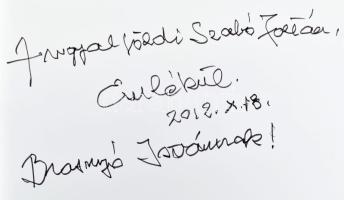 Angyalföldi Szabó Zoltán,
Emlékül.
2012. X. 18.
Brasnyó Istvánnak!